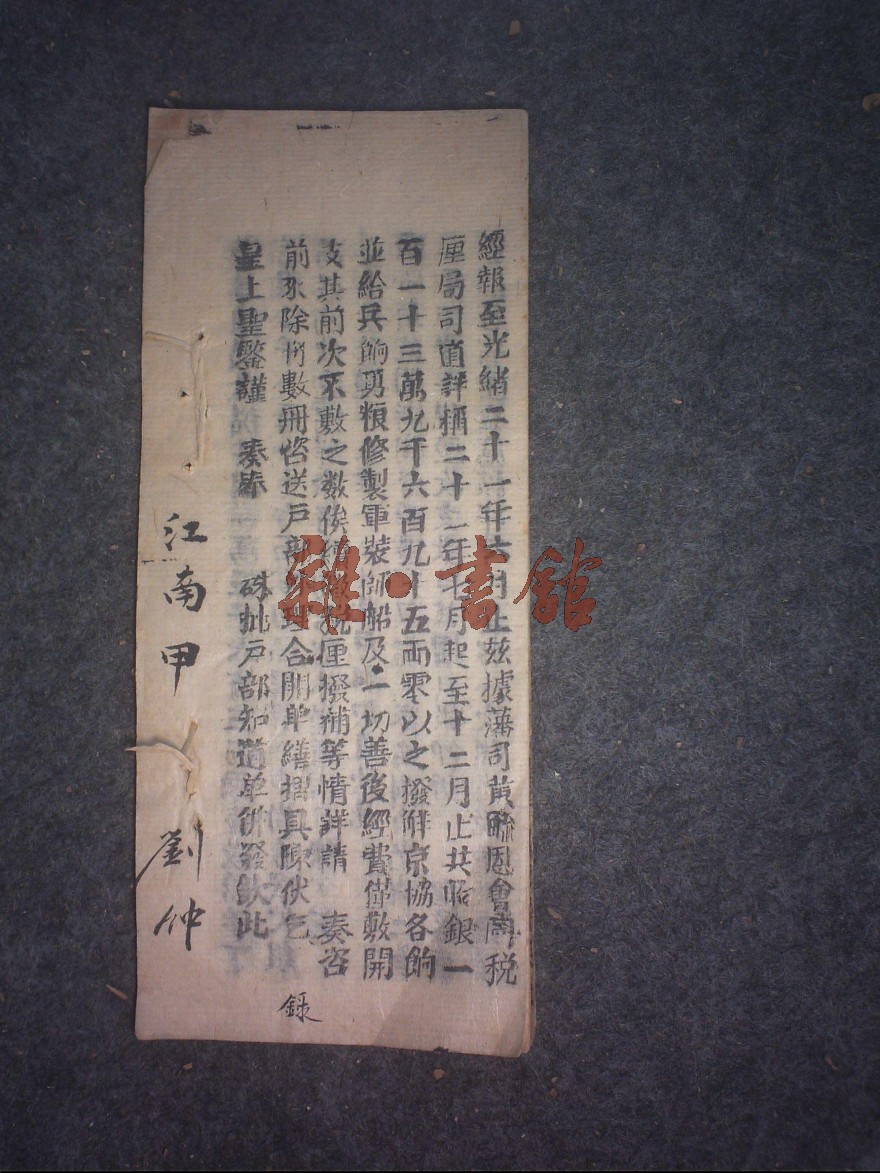 經報至光緒二十一年六月止兹據藩司黃毓恩會同稅
厘局司道詳稱二十一年七月起至十二月止共收銀一
百一十三萬九千六百九十五兩零以之撥解京協各餉
並給兵餉勇糧修製軍裝師船及一切善後經費僅敷開
支其前次不敷之數俟 厘撥補等情詳請 奏咨
前來除 數冊咨送戶部 理合開單繕摺具陳伏乞
皇上聖鑒謹 奏奉 硃批戶部知道單併發欽此
江南甲 劉仲
錄
雜·書館